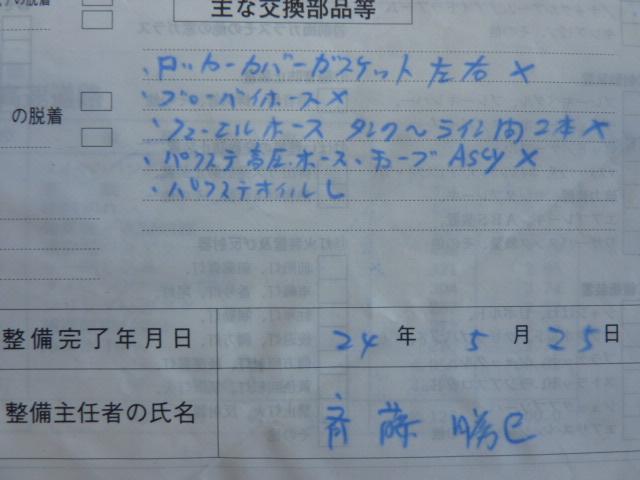 の脱着
主な交換部品等
・ロッカーカバーガスケット 左右 ×
・ブローバイホース×
・フューエルホース タンク〜ライン間 2本×
・パワステ高圧ホース、チューブ Assy ×
・パワステオイル L
の脱着
整備完了年月日 24 年 5 月 25 日
整備主任者の氏名 斉藤 勝巳